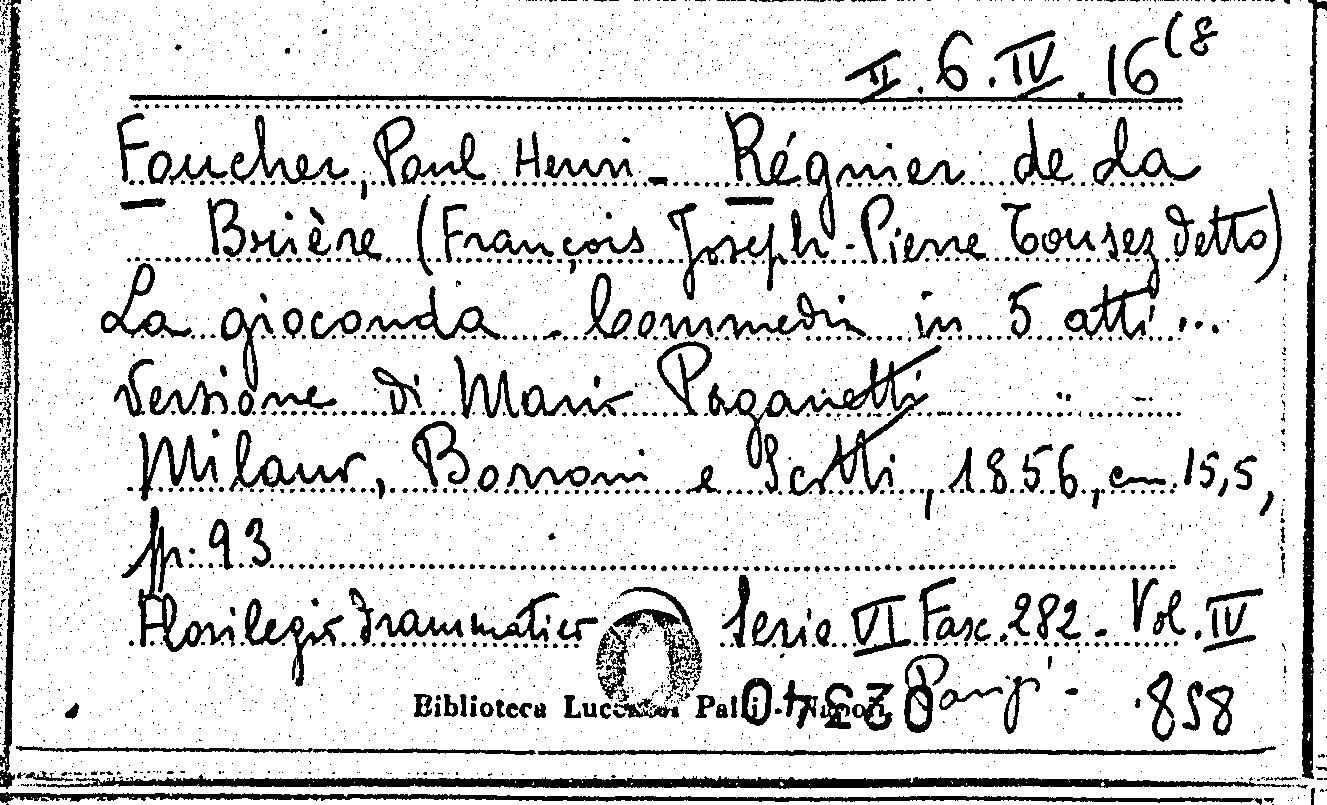 II.6.IV.16(8
Foucher, Paul Henri - Régnier de La
Brière (François Joseph-Pierre Tousez detto)
La gioconda - Commedia in 5 atti...
Versione di Mario Paganetti
Milano, Borroni e Scotti, 1856, cm 15,5,
p. 93
Florilegio drammatico Serie VI Fasc. 282 - Vol. IV
Biblioteca Lucchesi Palli - Napoli
858